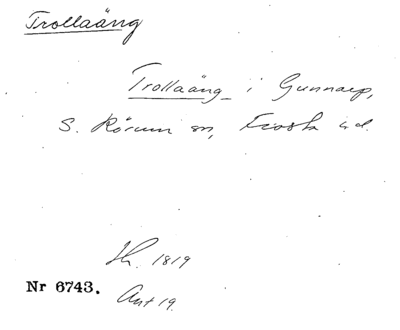 Trollaäng
Trollaäng i Gunnarp,
S. Rörum sn, Frosta hd.
Sk. 1819
Nr 6743. Ant 19.